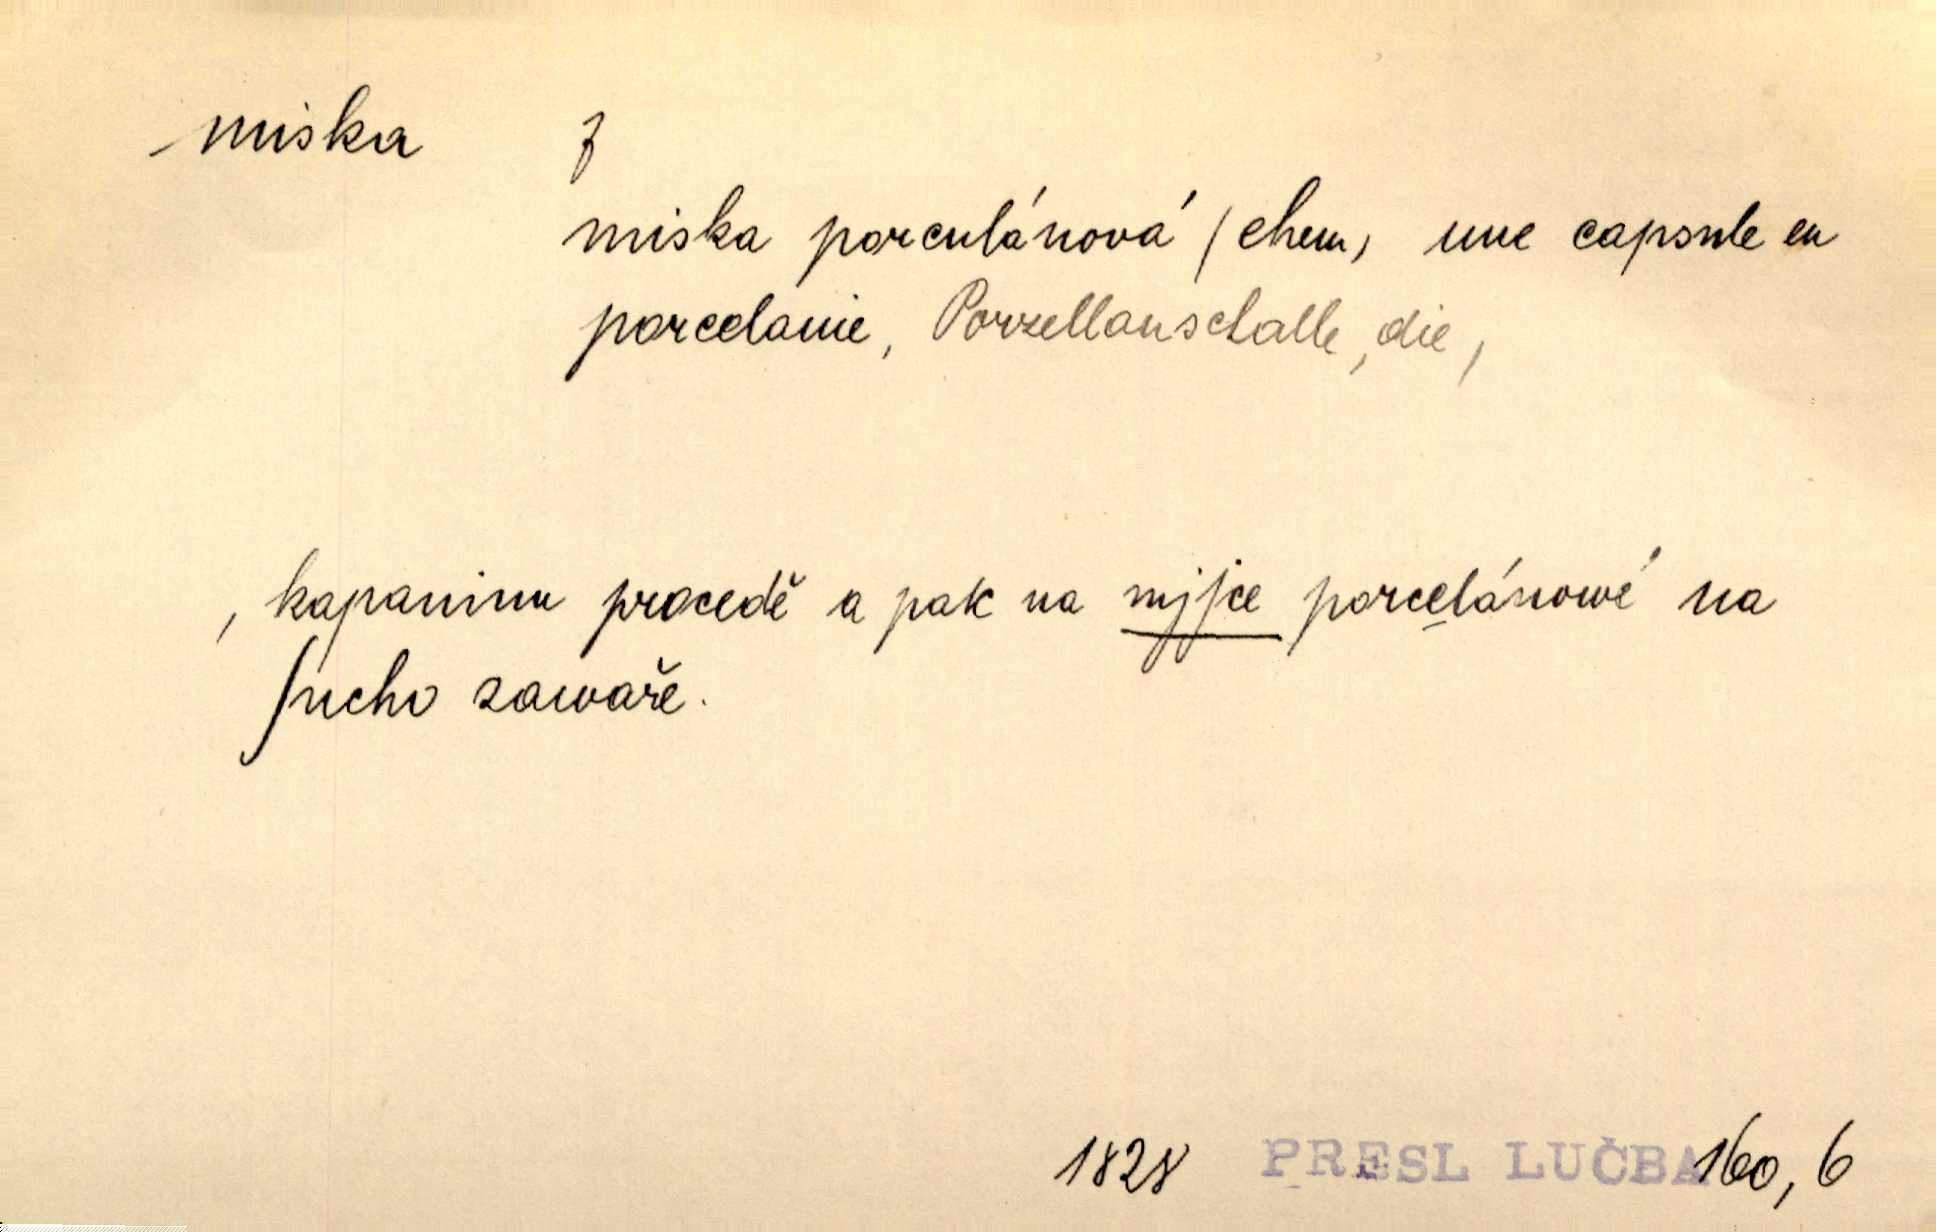 miska f
miska porculánová (chem) une capsule en
porcelanie, Porzellanschalle, die,
, kapaninu procedě a pak na mjſce porcelánowé na
ſucho zawaře.
1828 PRESL LUČBA 160, 6